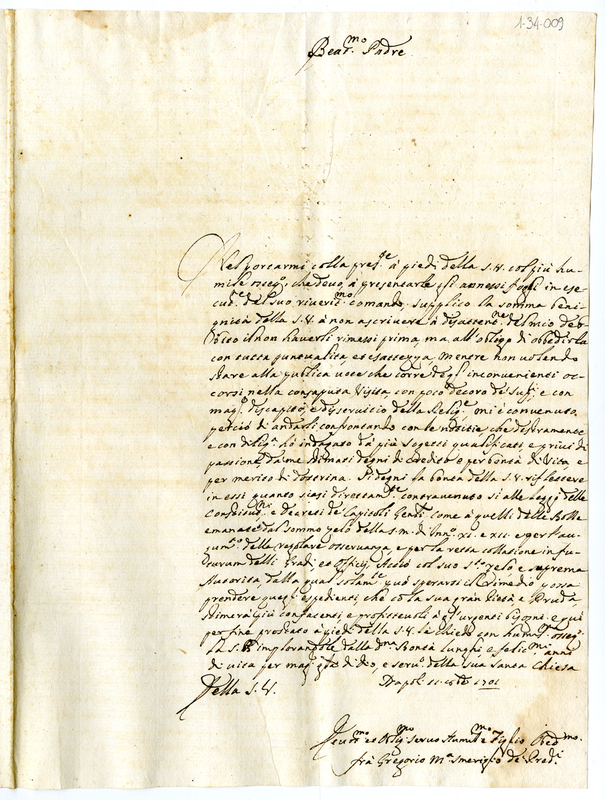 1-34-009
Beat.mo Padre
Nel porcarmi colla pres.te à piedi della S.V. col più hu-
mile osseq.o, che devo, à presentarle gli annessi fogli in ese-
cuz.e del suo riverit.mo comando, supplico la somma beni-
gnità della S.V. à non ascrivere à disattenz.ne del mio deb-
bito il non haverli rimessi prima, ma all'obligo di obbedirla
con tutta puntualità, et esattezza, mentre non volendo
stare alla publica voce che corre degl'inconvenienti oc-
corsi nella consaputa Visita, con poco decoro de' Sup.ri e con
mag.r discapito, e disservicio della Relig.e mi è convenuto,
perciò di andarli confrontando con le notitie che destramente
e con dilig.a hò indagato dà più sogetti qualificati e privi di
passione, da me stimati degni di credito e per bontà di Vita e
per merito di dottrina. Si degni la bontà della S.V. riflettere
in essi quanto siasi direttam.te contravenuto si alle leggi delle
Constituz.ni e decreti de' Capitoli Gen.li come à quelli delle Bolle
emanate dal sommo zelo della s.m. di Inn.o XI. e XII. e per l'au-
gum.to della regolare osservanza e per la retta collatione in fu-
turum delli Gradi et Officij. Acciò col suo S.to zelo e suprema
Autorità, dalla qual solam.te può sperarsi il rimedio possa
prendere quegl'espedienti, che cò la sua gran Pietà e Prud.a
stimerà più confacenti e profittevoli à gl'urgenti bisogni. e qui
per fine prostrato à piedi della S.V. la chiedo con humil.mo osseq.o
la S.B. implorandole dalla D.na Bontà lunghi e felic.mi anni
di vita per mag.r gl.a di dio, e serv.o della Sua Santa Chiesa
Della S.V. Napoli 1701
Dev.mo et Oblig.mo servo Humil.mo e Figlio Obed.mo
frà Gregorio M.a de' Pred.i